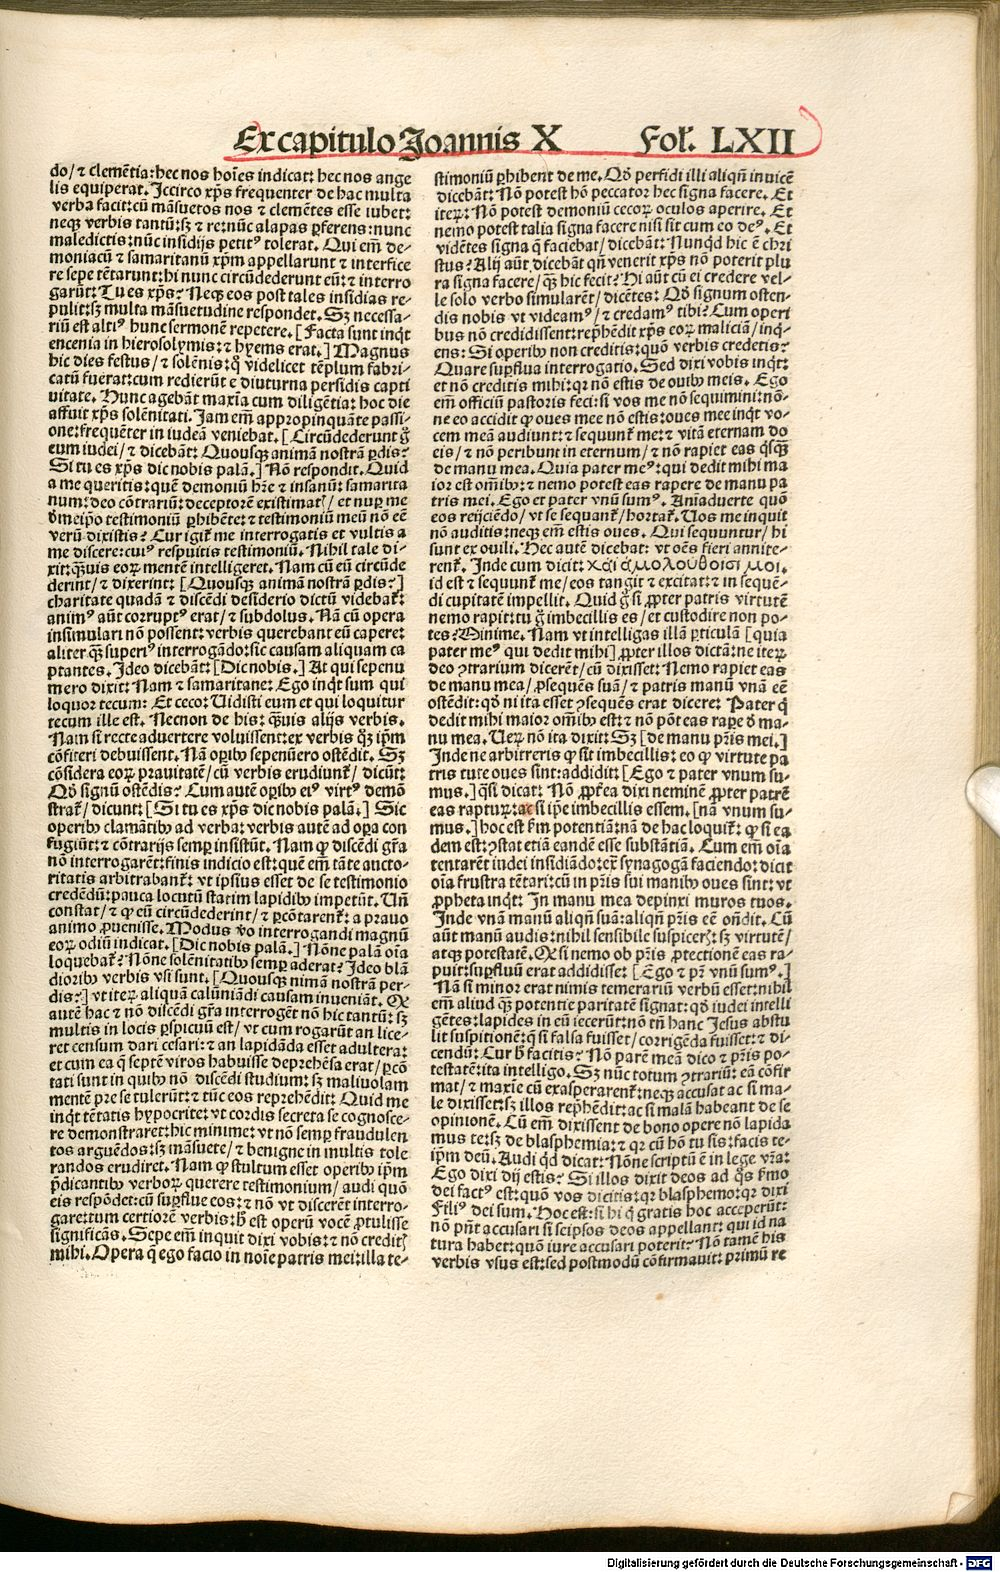 Ex capitulo Joannis X Fol. LXII
do/ ⁊ clemētia: hec nos hoīes indicat: hec nos ange
lis equiperat. Iccirco xp̄s frequenter de hac multa
verba facit: cū māsuetos nos ⁊ clemētes esse iubet:
neqꝫ verbis tantū: sꝫ ⁊ re: nūc alapas ꝑferens: nunc
maledictis: nūc insidijs petitꝰ tolerat. Qui em̄ de-
moniacū ⁊ samaritanū xp̄m appellarunt ⁊ interfice
re sepe tētarunt: hi nunc circūdederunt eū: ⁊ interro
garūt: Tu es xp̄s? Neqꝫ eos post tales insidias re-
pulit: sꝫ multa māsuetudine respondet. Sꝫ necessa-
riū est altiꝰ hunc sermonē repetere. [Facta sunt inq̇t
encenia in hierosolymis: ⁊ hyems erat.] Magnus
hic dies festus/ ⁊ solēnis: q̇ videlicet tēplum fabri-
catū fuerat: cum redierūt e diuturna persidis capti
uitate. Hunc agebāt maxīa cum diligētia: hoc die
affuit xp̄s solēnitati. Jam em̄ appropinquāte passi-
one: frequēter in iudeā veniebat. [Circūdederunt g̊
eum iudei/ ⁊ dicebāt: Quousqꝫ animā nostrā ꝑdis?
Si tu es xp̄s dic nobis palā.] Nō respondit. Quid
a me queritis: quē demoniū hr̄e ⁊ insanū: samarita
num: deo cōtrariū: deceptorē existimat⸝/ et nuꝑ me
de meip̄o testimoniū ꝑhibēte: ⁊ testimoniū meū nō eē
verū dixistis? Cur igit̄ me interrogatis et vultis a
me discere: cuiꝰ respuitis testimoniū. Nihil tale di-
xit: q̄uis eoꝝ mentē intelligeret. Nam cū eū circūde
derint/ ⁊ dixerint: [Quousqꝫ animā nostrā ꝑdis?]
charitate quadā ⁊ discēdi desiderio dictū videbat̄:
animꝰ aūt corruptꝰ erat/ ⁊ subdolus. Nā cū opera
insimulari nō possent: verbis querebant eū capere:
aliter qꝫ superiꝰ interrogādo: sic causam aliquam ca
ptantes. Ideo dicebāt: [Dic nobis.] At qui sepenu
mero dixit: Nam ⁊ samaritane: Ego inq̇t sum qui
loquor tecum: Et ceco: Uidisti eum et qui loquitur
tecum ille est. Necnon de his: q̄uis alijs verbis.
Nam si recte aduertere voluissent: ex verbis qꝫ ip̄m
cōfiteri debuissent. Nā oꝑibꝰ sepenūero ostēdit. Sꝫ
cōsidera eoꝝ prauitatē/ cū verbis erudiunt̄/ dicūt:
Qd̄ signū ostēdis? Cum autē oꝑibꝰ eiꝰ virtꝰ demō
strat̄/ dicunt: [Si tu es xp̄s dic nobis palā.] Sic
operibꝰ clamātibꝰ ad verba: verbis autē ad oꝑa con
fugiūt: ⁊ cōtrarijs semꝑ insistūt. Nam ꝙ discēdi gr̄a
nō interrogarēt: finis indicio est: quē em̄ tāte aucto-
ritatis arbitrabant̄: vt ipsius esset de se testimonio
credēdū: pauca locutū statim lapidibꝰ impetūt. Un̄
constat/ ⁊ ꝙ eū circūdederint/ ⁊ ꝑcōtarent̄: a prauo
animo ꝓuenisse. Modus v̊o interrogandi magnū
eoꝝ odiū indicat. [Dic nobis palā.] Nōne palā oīa
loquebat̄? Nōne solēnitatibꝰ semꝑ aderat? Ideo blā
dioribꝰ verbis vsi sunt. [Quousqꝫ nimā nostrā per-
dis?] vt iteꝝ aliquā calūniādi causam inueniāt. Qꝙ
autē hac ⁊ nō discēdi gr̄a interrogēt nō hic tantū: sꝫ
multis in locis ꝑspicuū est/ vt cum rogarūt an lice-
ret censum dari cesari: ⁊ an lapidāda esset adultera:
et cum ea q̄ septē viros habuisse deprehēsa erat/ ꝑcō
tati sunt in quibꝰ nō discēdi studium: sꝫ maliuolam
mentē pre se tulerūt: ⁊ tūc eos reprehēdit: Quid me
inq̇t tētatis hypocrite: vt cordis secreta se cognosce-
re demonstraret: hic minime: vt nō semꝑ fraudulen
tos arguēdos: sꝫ māsuete/ ⁊ benigne in multis tole
randos erudiret. Nam ꝙ stultum esset operibꝰ ip̄m
p̄dicantibꝰ verboꝝ querere testimonium/ audi quō
eis respōdet: cū suꝑflue eos: ⁊ nō vt discerēt interro-
gare: tum certiorē verbis: h̄ est operū vocē ꝓtulisse
significās. Sepe em̄ inquit dixi vobis: ⁊ nō credit⸝
mihi. Opera q̄ ego facio in noīe patris mei: illa te-
stimoniū ꝑhibent de me. Qd̄ perfidi illi aliqn̄ inuicē
dicebāt: Nō potest hō peccato: hec signa facere. Et
iteꝝ: Nō potest demoniū cecoꝝ oculos aperire. Et
nemo potest talia signa facere nisi sit cum eo deꝰ. Et
vidētes signa q̄ faciebat/ dicebāt: Nunqd̄ hic ē chri
stus? Alij aūt dicebāt qn̄ venerit xp̄s nō poterit plu
ra signa facere/ qꝫ hic fecit? Hi aūt cū ei credere vel-
le solo verbo simularēt/ dicētes: Qd̄ signum osten-
dis nobis vt videamꝰ/ ⁊ credamꝰ tibi? Cum operi
bus nō credidissent: rep̄hēdit xp̄s eoꝝ maliciā/ inq̇-
ens: Si operibꝰ non creditis: quō verbis credetis?
Quare suꝑflua interrogatio. Sed dixi vobis inq̇t:
et nō creditis mihi: qꝛ nō estis de ouibꝰ meis. Ego
em̄ officiū pastoris feci: si vos me nō sequimini: nō-
ne eo accidit ꝙ oues mee nō estis: oues mee inq̇t vo-
cem meā audiunt: ⁊ sequunt̄ me: ⁊ vitā eternam do
eis/ ⁊ nō peribunt in eternum/ ⁊ nō rapiet eas q̇sqꝫ
de manu mea. Quia pater meꝰ: qui dedit mihi ma
ior est om̄ibꝰ: ⁊ nemo potest eas rapere de manu pa
tris mei. Ego et pater vnū sumꝰ. Anīaduerte quō
eos reijciēdo/ vt se sequant̄/ hortat̄. Uos me inquit
nō auditis: neqꝫ em̄ estis oues. Qui sequuntur/ hi
sunt ex ouili. Hec autē dicebat: vt oēs fieri annite-
rent̄. Inde cum dicit: καὶ ἀκολουθοῖσι μοι.
id est ⁊ sequunt̄ me/ eos tangit ⁊ excitat: ⁊ in sequē-
di cupitatē impellit. Quid g̊ si ꝓpter patris virtutē
nemo rapit: tu g̊ imbecillis es/ et custodire non po-
tes? Minime. Nam vt intelligas illā ꝑticulā [quia
pater meꝰ qui dedit mihi] ꝓpter illos dictā: ne iteꝝ
deo ꝯtrarium dicerēt/ cū dixisset: Nemo rapiet eas
de manu mea/ ꝓsequēs suā/ ⁊ patris manū vnā eē
ostēdit: qd̄ ni ita esset ꝯsequēs erat dicere: Pater q̇
dedit mihi maior om̄ibꝰ est: ⁊ nō pōt eas rape de ma
nu mea. Ueꝝ nō ita dixit: Sꝫ [de manu pr̄is mei.]
Inde ne arbitreris ꝙ sit imbecillis: eo ꝙ virtute pa
tris tute oues sint: addidit: [Ego ⁊ pater vnum su-
mus.] q̄si dicat: Nō ꝓpt̄ea dixi neminē ꝓpter patrē
eas raptuꝝ: ac si ip̄e imbecillis essem. [nā vnum su-
mus.] hoc est km̄ potentiā: nā de hac loquit̄: ꝙ si ea
dem est: ꝯstat etiā eandē esse substātiā. Cum em̄ oīa
tentarēt iudei insidiādo: ext̄ synagogā faciendo: dicit
oīa frustra tētari: cū in pr̄is sui manibꝰ oues sint: vt
ꝓpheta inq̇t: In manu mea depinxi muros tuos.
Inde vnā manū aliqn̄ suā: aliqn̄ pr̄is eē on̄dit. Cū
aūt manū audis: nihil sensibile suspiceris: sꝫ virtutē/
atqꝫ potestatē. Qꝙ si nemo ob pr̄is ꝓtectionē eas ra-
puit: suꝑfluū erat addidisse: [Ego ⁊ pr̄ vnū sumꝰ.]
Nā si minor erat nimis temerariū verbū esset: nihil
em̄ aliud qꝫ potentie paritatē signat: qd̄ iudei intelli
gētes: lapides in eū iecerūt: nō tn̄ hanc Jesus abstu
lit suspitionē: q̄ si falsa fuisset/ corrigēda fuisset: ⁊ di-
cendū: Cur h̄ facitis? Nō parē meā dico ⁊ pr̄is po-
testatē: ita intelligo. Sꝫ nūc totum ꝯtrariū: eā cōfir
mat/ ⁊ maxīe cū exasperarent̄: neqꝫ accusat ac si ma-
le dixisset: sꝫ illos rep̄hēdit: ac si malā habeant de se
opinionē. Cū em̄ dixissent de bono opere nō lapida
mus te: sꝫ de blasphemia: ⁊ qꝛ cū hō tu sis: facis te-
ip̄m deū. Audi qd̄ dicat: Nōne scriptū ē in lege vr̄a:
Ego dixi dij estis? Si illos dixit deos ad q̄s s̄mo
dei factꝰ est: quō vos dicitis: qꝛ blasphemo: qꝛ dixi
Filiꝰ dei sum. Hoc est: si hi q̄ gratis hoc acceperūt:
nō pn̄t accusari si seipsos deos appellant: qui id na
tura habet: quō iure accusari poterit? Nō tamē his
verbis vsus est: sed postmodū cōfirmauit: primū re
Digitalisierung gefördert durch die Deutsche Forschungsgemeinschaft - DFG